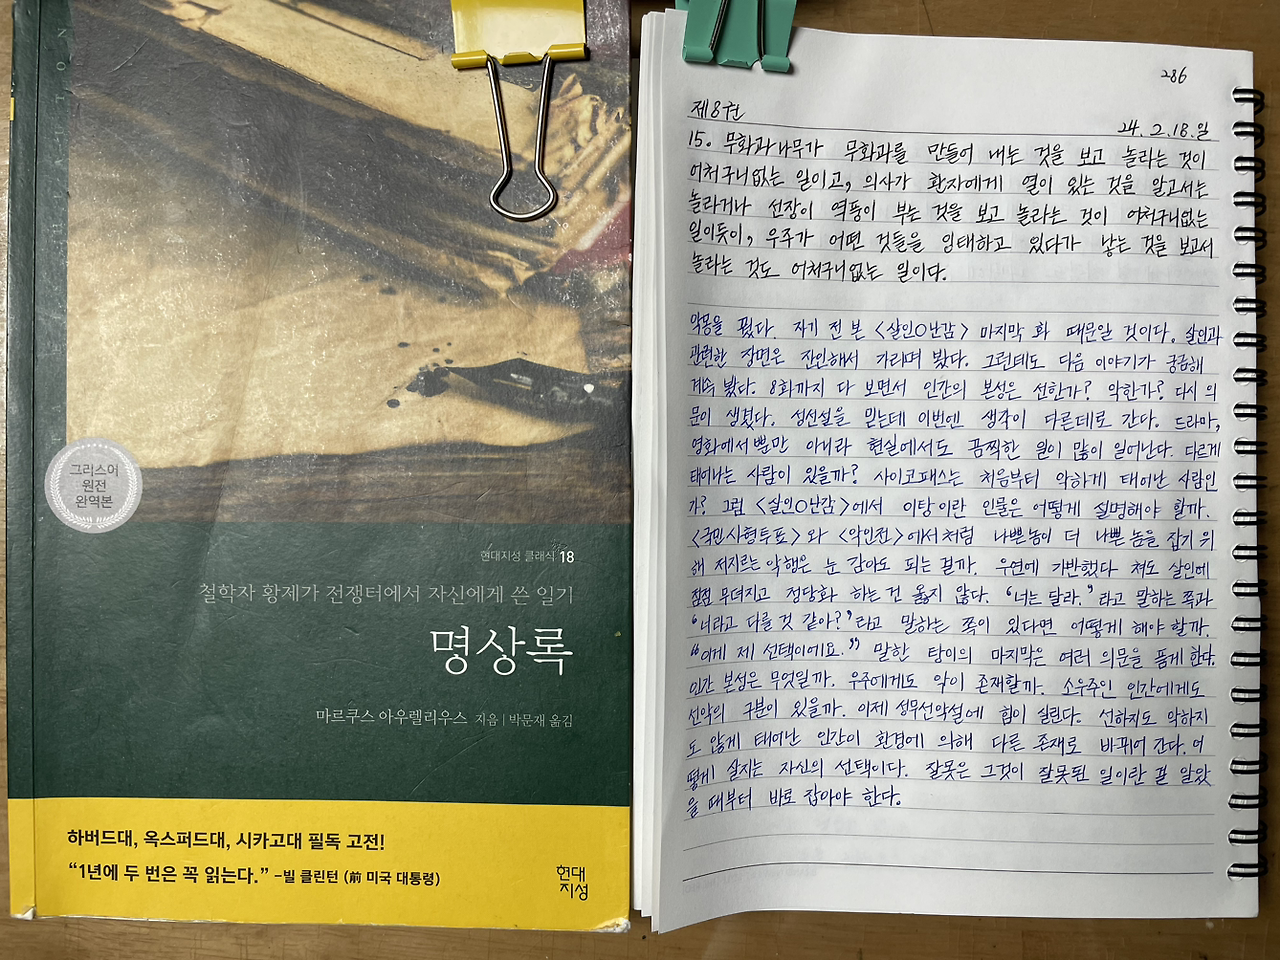 그리스어
원전
완역본
현대지성 클래식 18
철학자 황제가 전쟁터에서 자신에게 쓴 일기
명상록
마르쿠스 아우렐리우스 지음 | 박문재 옮김
하버드대, 옥스퍼드대, 시카고대 필독 고전!
“1년에 두 번은 꼭 읽는다.” -빌 클린턴 (前 미국 대통령)
현대
지성
286
제8권
24. 2. 18. 일
15. 무화과나무가 무화과를 만들어 내는 것을 보고 놀라는 것이
어처구니없는 일이고, 의사가 환자에게 열이 있는 것을 알고서는
놀라거나 선장이 역풍이 부는 것을 보고 놀라는 것이 어처구니없는
일이듯이, 우주가 어떤 것들을 잉태하고 있다가 낳는 것을 보고서
놀라는 것도 어처구니없는 일이다.
악몽을 꿨다. 자기 전 본 <살인O난감> 마지막 화 때문일 것이다. 살인과
관련한 장면은 잔인해서 가리며 봤다. 그런데도 다음 이야기가 궁금해
계속 봤다. 8화까지 다 보면서 인간의 본성은 선한가? 악한가? 다시 의
문이 생겼다. 성선설을 믿는데 이번엔 생각이 다른데로 간다. 드라마,
영화에서 뿐만 아니라 현실에서도 끔찍한 일이 많이 일어난다. 다르게
태어나는 사람이 있을까? 사이코패스는 처음부터 악하게 태어난 사람인
가? 그럼 <살인O난감>에서 이탕이란 인물은 어떻게 설명해야 할까.
<국민사형투표>와 <악인전>에서처럼 나쁜놈이 더 나쁜 놈을 잡기 위
해 저지르는 악행은 눈 감아도 되는 걸까. 우연에 기반했다 쳐도 살인에
점점 무뎌지고 정당화 하는 건 옳지 않다. “너는 달라.”라고 말하는 쪽과
“너라고 다를 것 같아?”라고 말하는 쪽이 있다면 어떻게 해야 할까.
“이게 제 선택이에요.” 말한 탕이의 마지막은 여러 의문을 품게 한다.
인간 본성은 무엇일까. 우주에게도 악이 존재할까. 소우주인 인간에게도
선악의 구분이 있을까. 이제 성무선악설에 힘이 실린다. 선하지도 악하지
도 않게 태어난 인간이 환경에 의해 다른 존재로 바뀌어 간다. 어
떻게 살지는 자신의 선택이다. 잘못은 그것이 잘못된 일이란 걸 알았
을 때부터 바로 잡아야 한다.